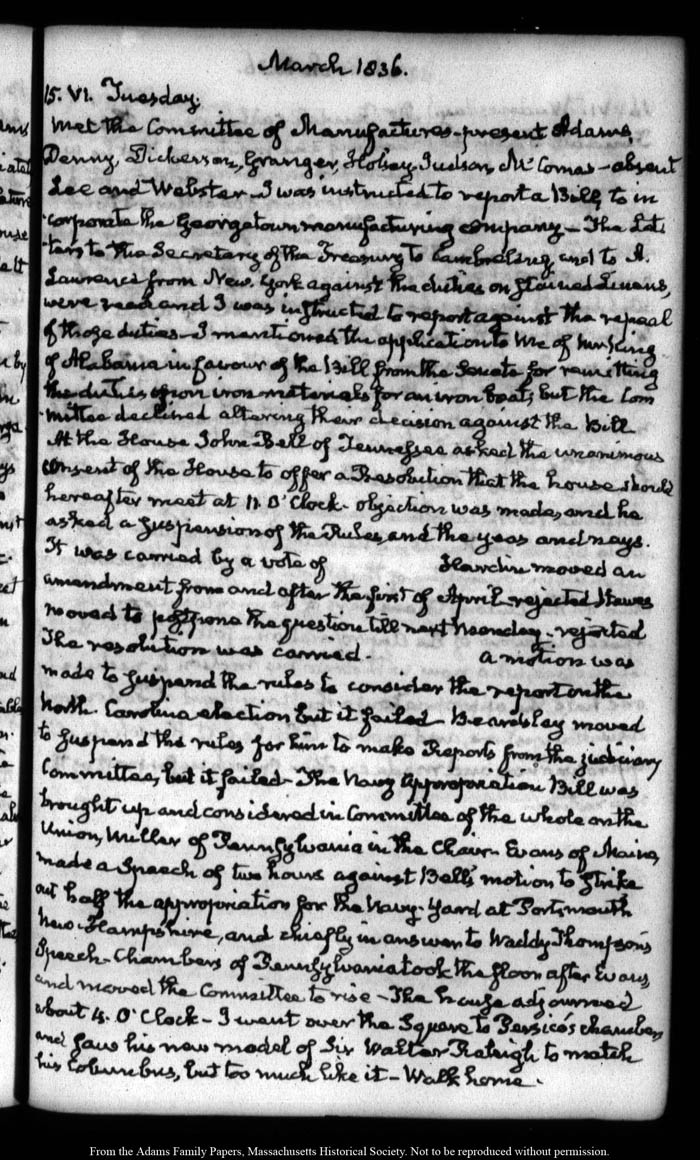 March 1836.
15. VI. Tuesday.
Met the Committee of Manufactures – present Adams,
Denny, Dickerson, Granger, Halsey, Judson, McComas – absent
Lee and Webster – I was instructed to report a Bill, to in
corporate the Georgetown manufacturing company – The Let-
ters to the Secretary of the Treasury to Cambreleng, and to A.
Lawrence from New York against the duties on stained Linens,
were read and I was instructed to report against the repeal
of those duties – I mentioned the application to me of Mr King
of Alabama in favour of the Bill from the Senate for remitting
the duties upon iron materials for an iron boat, but the Com
mittee declined altering their decision against the Bill
At the House John Bell of Tennessee asked the unanimous
consent of the House to offer a Resolution that the house should
hereafter meet at 11. O'Clock – objection was made, and he
asked a suspension of the Rules, and the yeas and nays.
It was carried by a vote of Hardin moved an
amendment from and after the first of April – rejected Hawes
moved to postpone the question till next Monday – rejected
The resolution was carried. a motion was
made to suspend the rules to consider the report on the
North Carolina election but it failed – Beardsley moved
to suspend the rules for him to make Reports from the judiciary
Committee, but it failed – The Navy appropriation Bill was
brought up and considered in Committee of the whole on the
Union, Miller of Pennsylvania in the Chair – Evans of Maine,
made a Speech of two hours against Bell's motion to strike
out half the appropriation for the Navy-Yard at Portsmouth
New-Hampshire, and chiefly in answer to Waddy Thompson's
Speech – Chambers of Pennsylvania took the floor after Evans,
and moved the Committee to rise – The house adjourned
about 4. O'Clock – I went over the Square to Persico's chamber,
and saw his new model of Sir Walter Raleigh to match
his Columbus, but too much like it – Walk home.
From the Adams Family Papers, Massachusetts Historical Society. Not to be reproduced without permission.